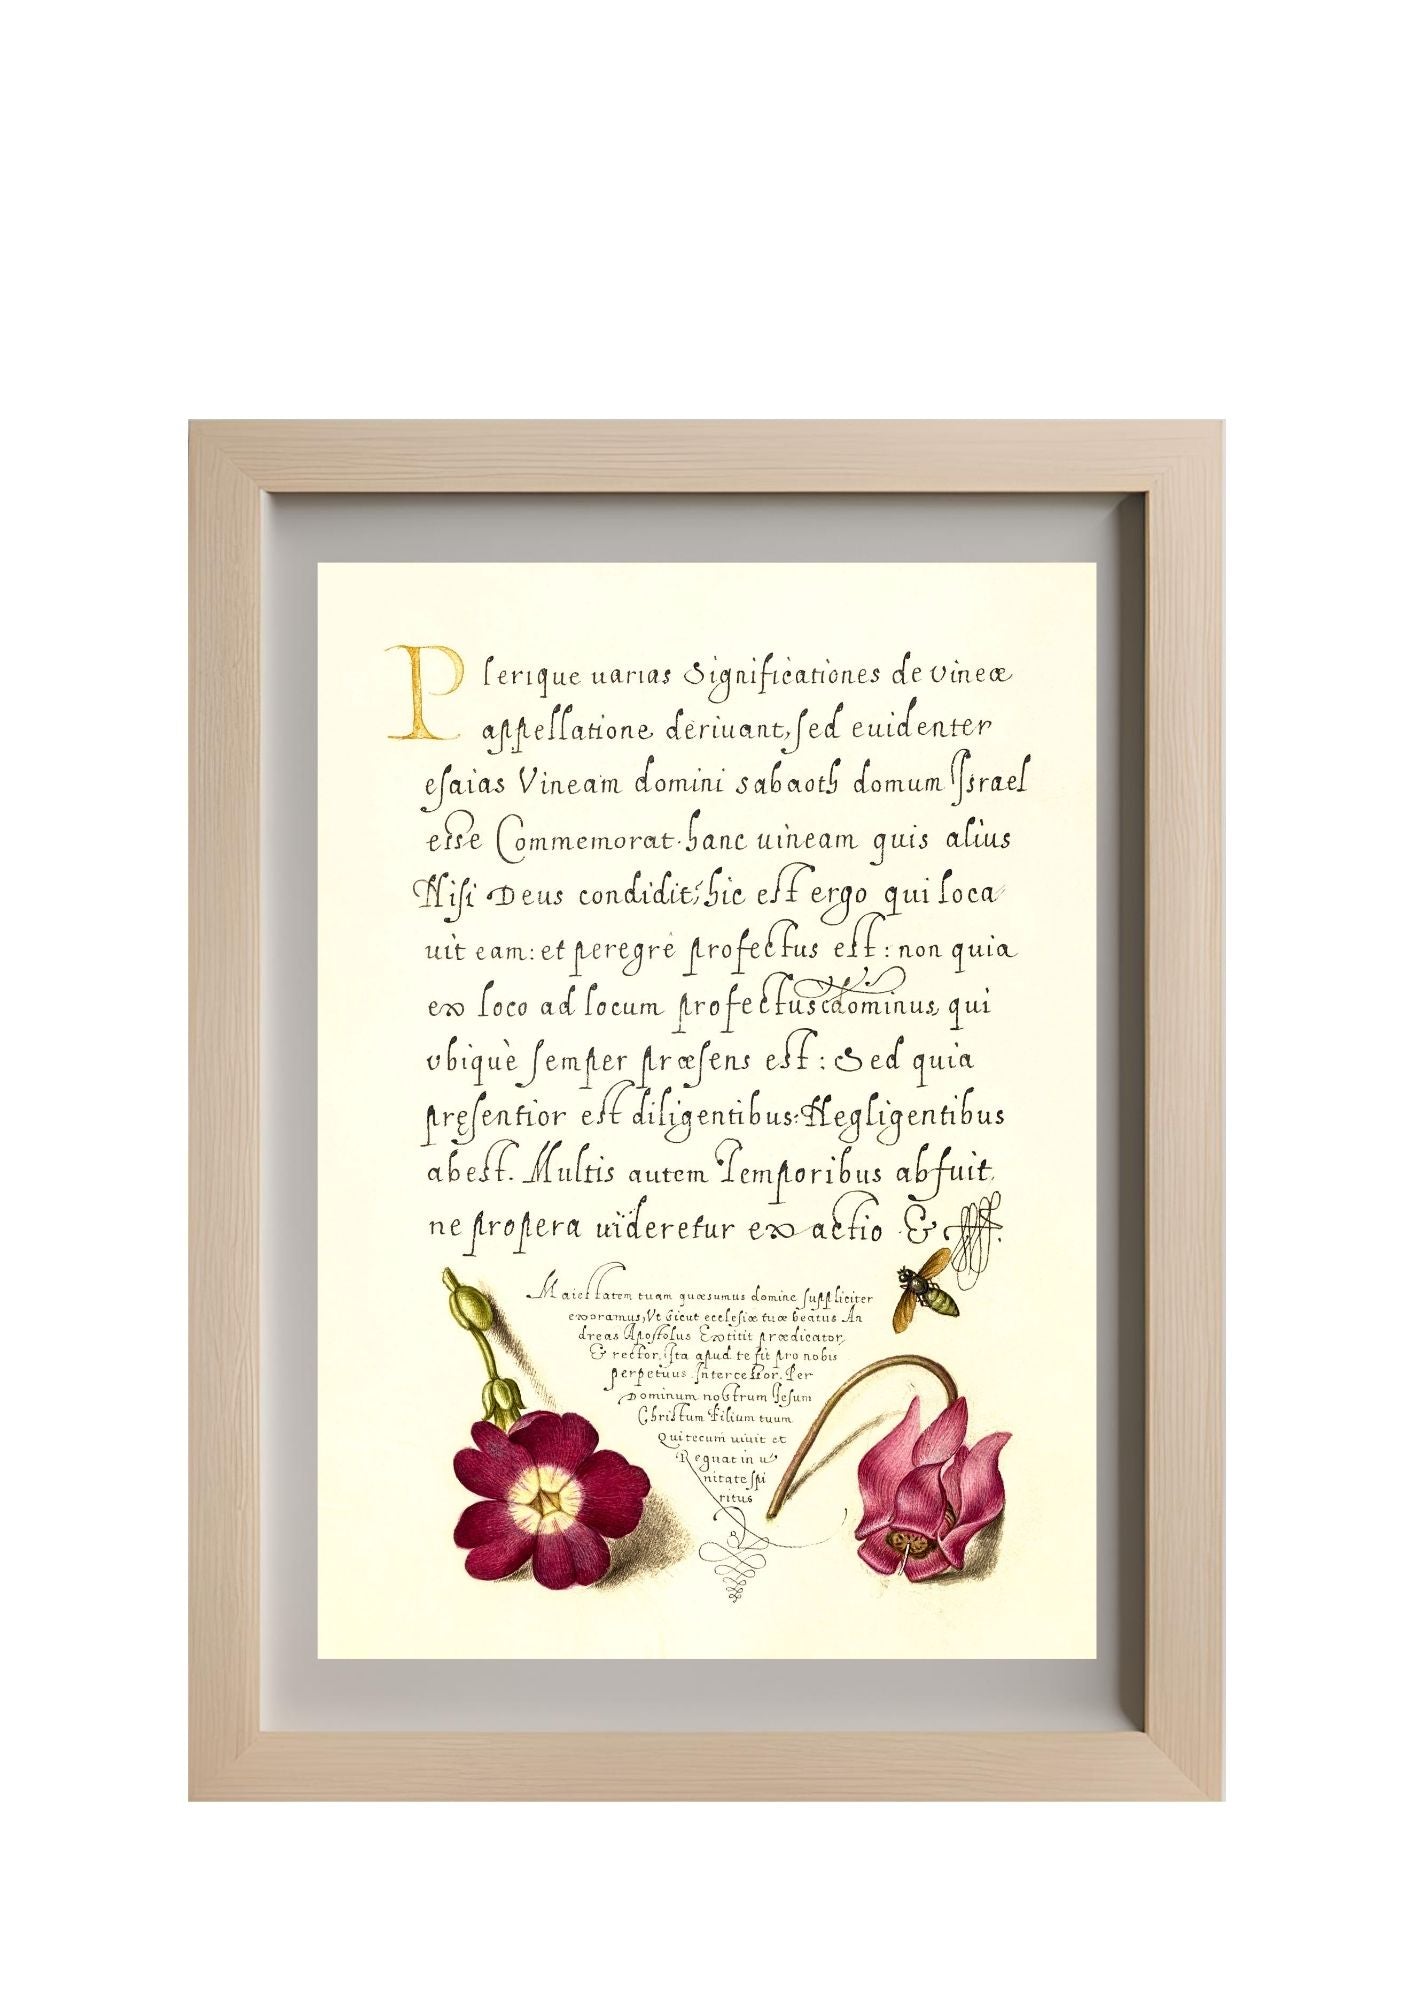 Plerique uarias Significationes de vineæ
appellatione deriuant, sed euidenter
esaias Vineam domini sabaoth domum Israel
esse Commemorat. hanc uineam quis alius
Nisi Deus condidit; hic est ergo qui loca
uit eam: et peregrè profectus est: non quia
ex loco ad locum profectus dominus, qui
vbiquè semper præsens est: Sed quia
pręsentior est diligentibus: Negligentibus
abest. Multis autem Temporibus abfuit,
ne propera uideretur exactio &
Maiestatem tuam quæsumus domine suppliciter
exoramus, Vt sicut ecclesiæ tuæ beatus An
dreas Apostolus Extitit prædicator,
& rector, ita apud te sit pro nobis
perpetuus Intercessor. Per
Dominum nostrum Jesum
Christum Filium tuum
Qui tecum uiuit et
Regnat in u
nitate spi
ritus